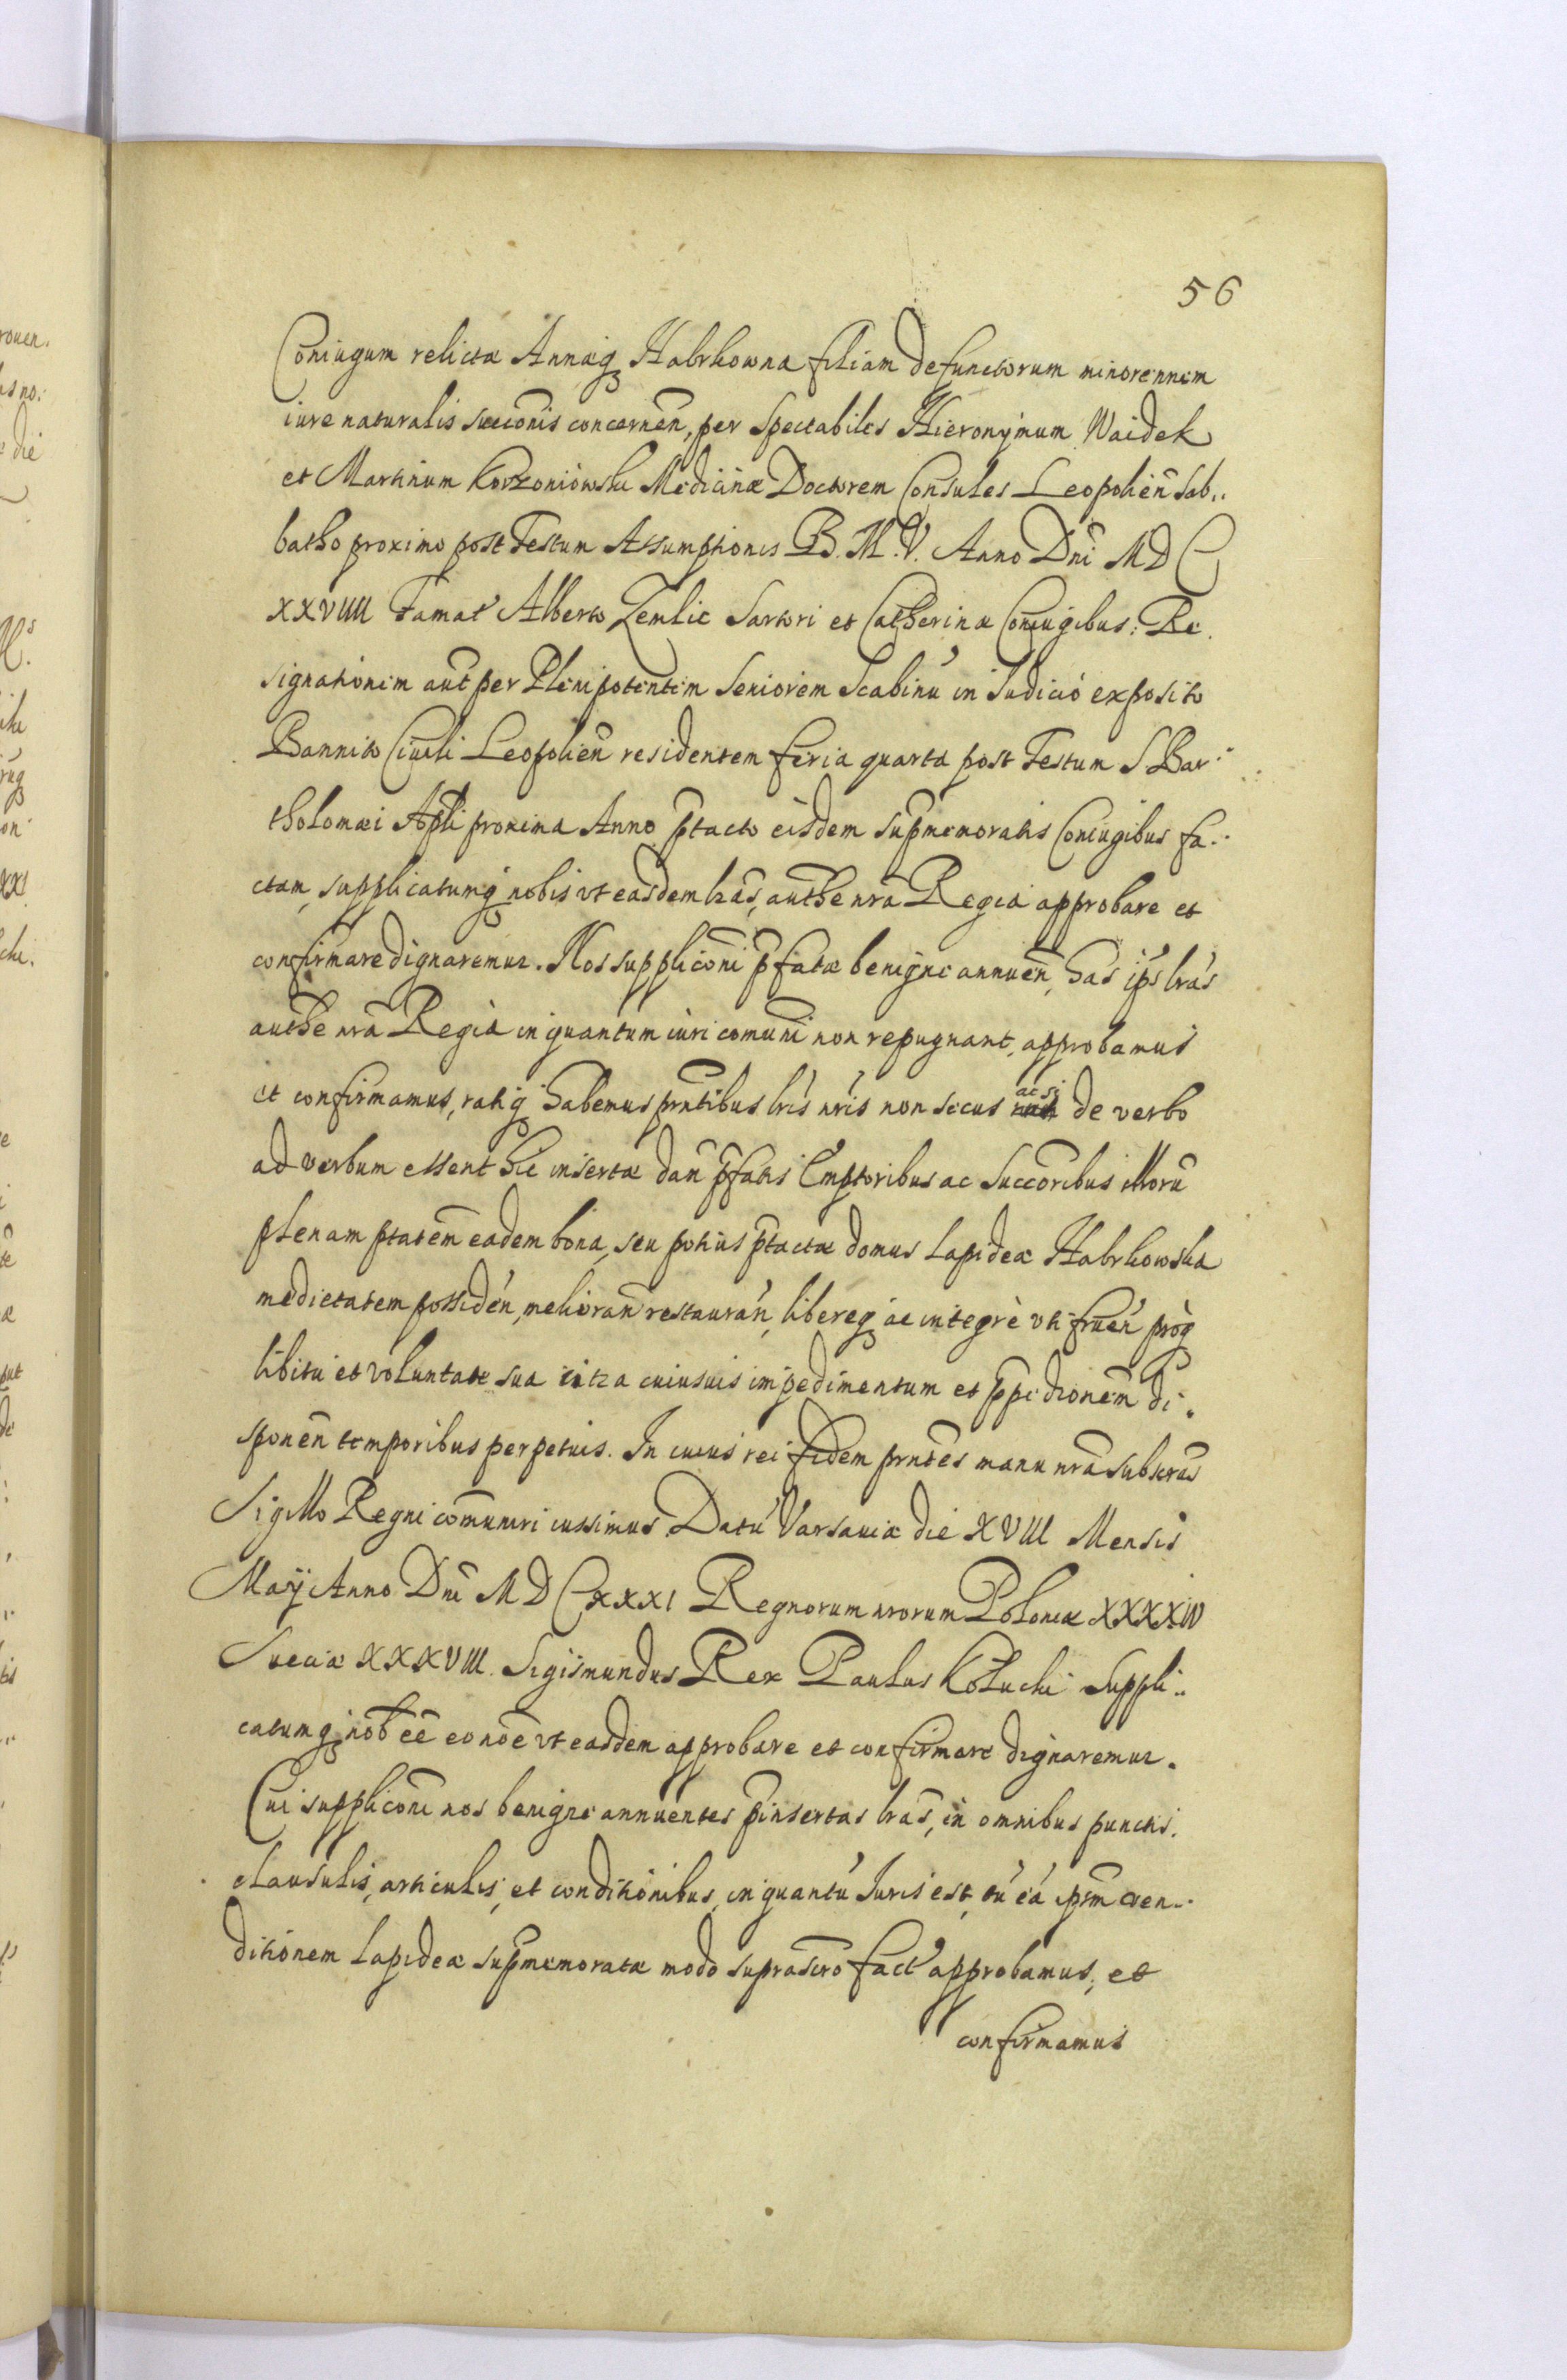 56
Coniugum relictæ Annæq Habrkowna filiam defunctorum minorennem
iure naturalis succonis concernen, per Spectabiles Hieronymum Waidek
et Martinum Korzoniowski Medicinæ Doctorem Consules Leopolien Sab..
batho proximo post Festum Assumptionis B. M. V. Anno Dni MDC
XXVIIII Famat Alberto Zemlic Sartori et Catherinæ Coniugibus: Re.
signationem aut per Plenipotentem Seniorem Scabinu in Iudicio exposito
Bannito Civili Leopolien residentem feria quarta post Festum S Bar
tholomæi Apli proxima Anno ptacto eisdem supmemoratis Coniugibus fa..
ctam, supplicatumq nobis vt easdem lras, authe nra Regia approbare et
confirmare dignaremur. Nos supplicõni pfatæ benigne annuen, has ips lras
authe nra Regia in quantum iuri comuni non repugnant, approbamus
et confirmamus, ratiq habemus prntibus lris nris non secus ac si de verbo
ad verbum essent hic insertæ dan pfatis Emptoribus ac Succoribus illoru
plenam ptatem eadem bona, seu potius ptactæ domus Lapideæ Habrkowska
medietatem possiden, melioran restauran, libereq ac integrè vti fruen proq
libitu et voluntate sua citra cuiusuis impedimentum et ppedionem di.
sponen temporibus perpetuis. In cuius rei fidem prntes manu nra subscras
Sigillo Regni comuniri iussimus. Datu Varsaviæ die XVIII Mensis
Maÿ Anno Dni MDCXXXI Regnorum nrorum Poloniæ XXXXIV
Sueciæ XXXVIII. Sigismundus Rex Paulus Kołucki Suppli..
catumq nob ee eo noe vt easdem approbare et confirmare dignaremur.
Cui supplicõni nos benigne annuentes pinsertas lras, in omnibus punctis.
clausulis, articulis, et conditionibus, in quantu Iuris est, tu ea ipsm ven..
ditionem Lapideæ supmemoratæ modo suprascro fact approbamus, et
confirmamus